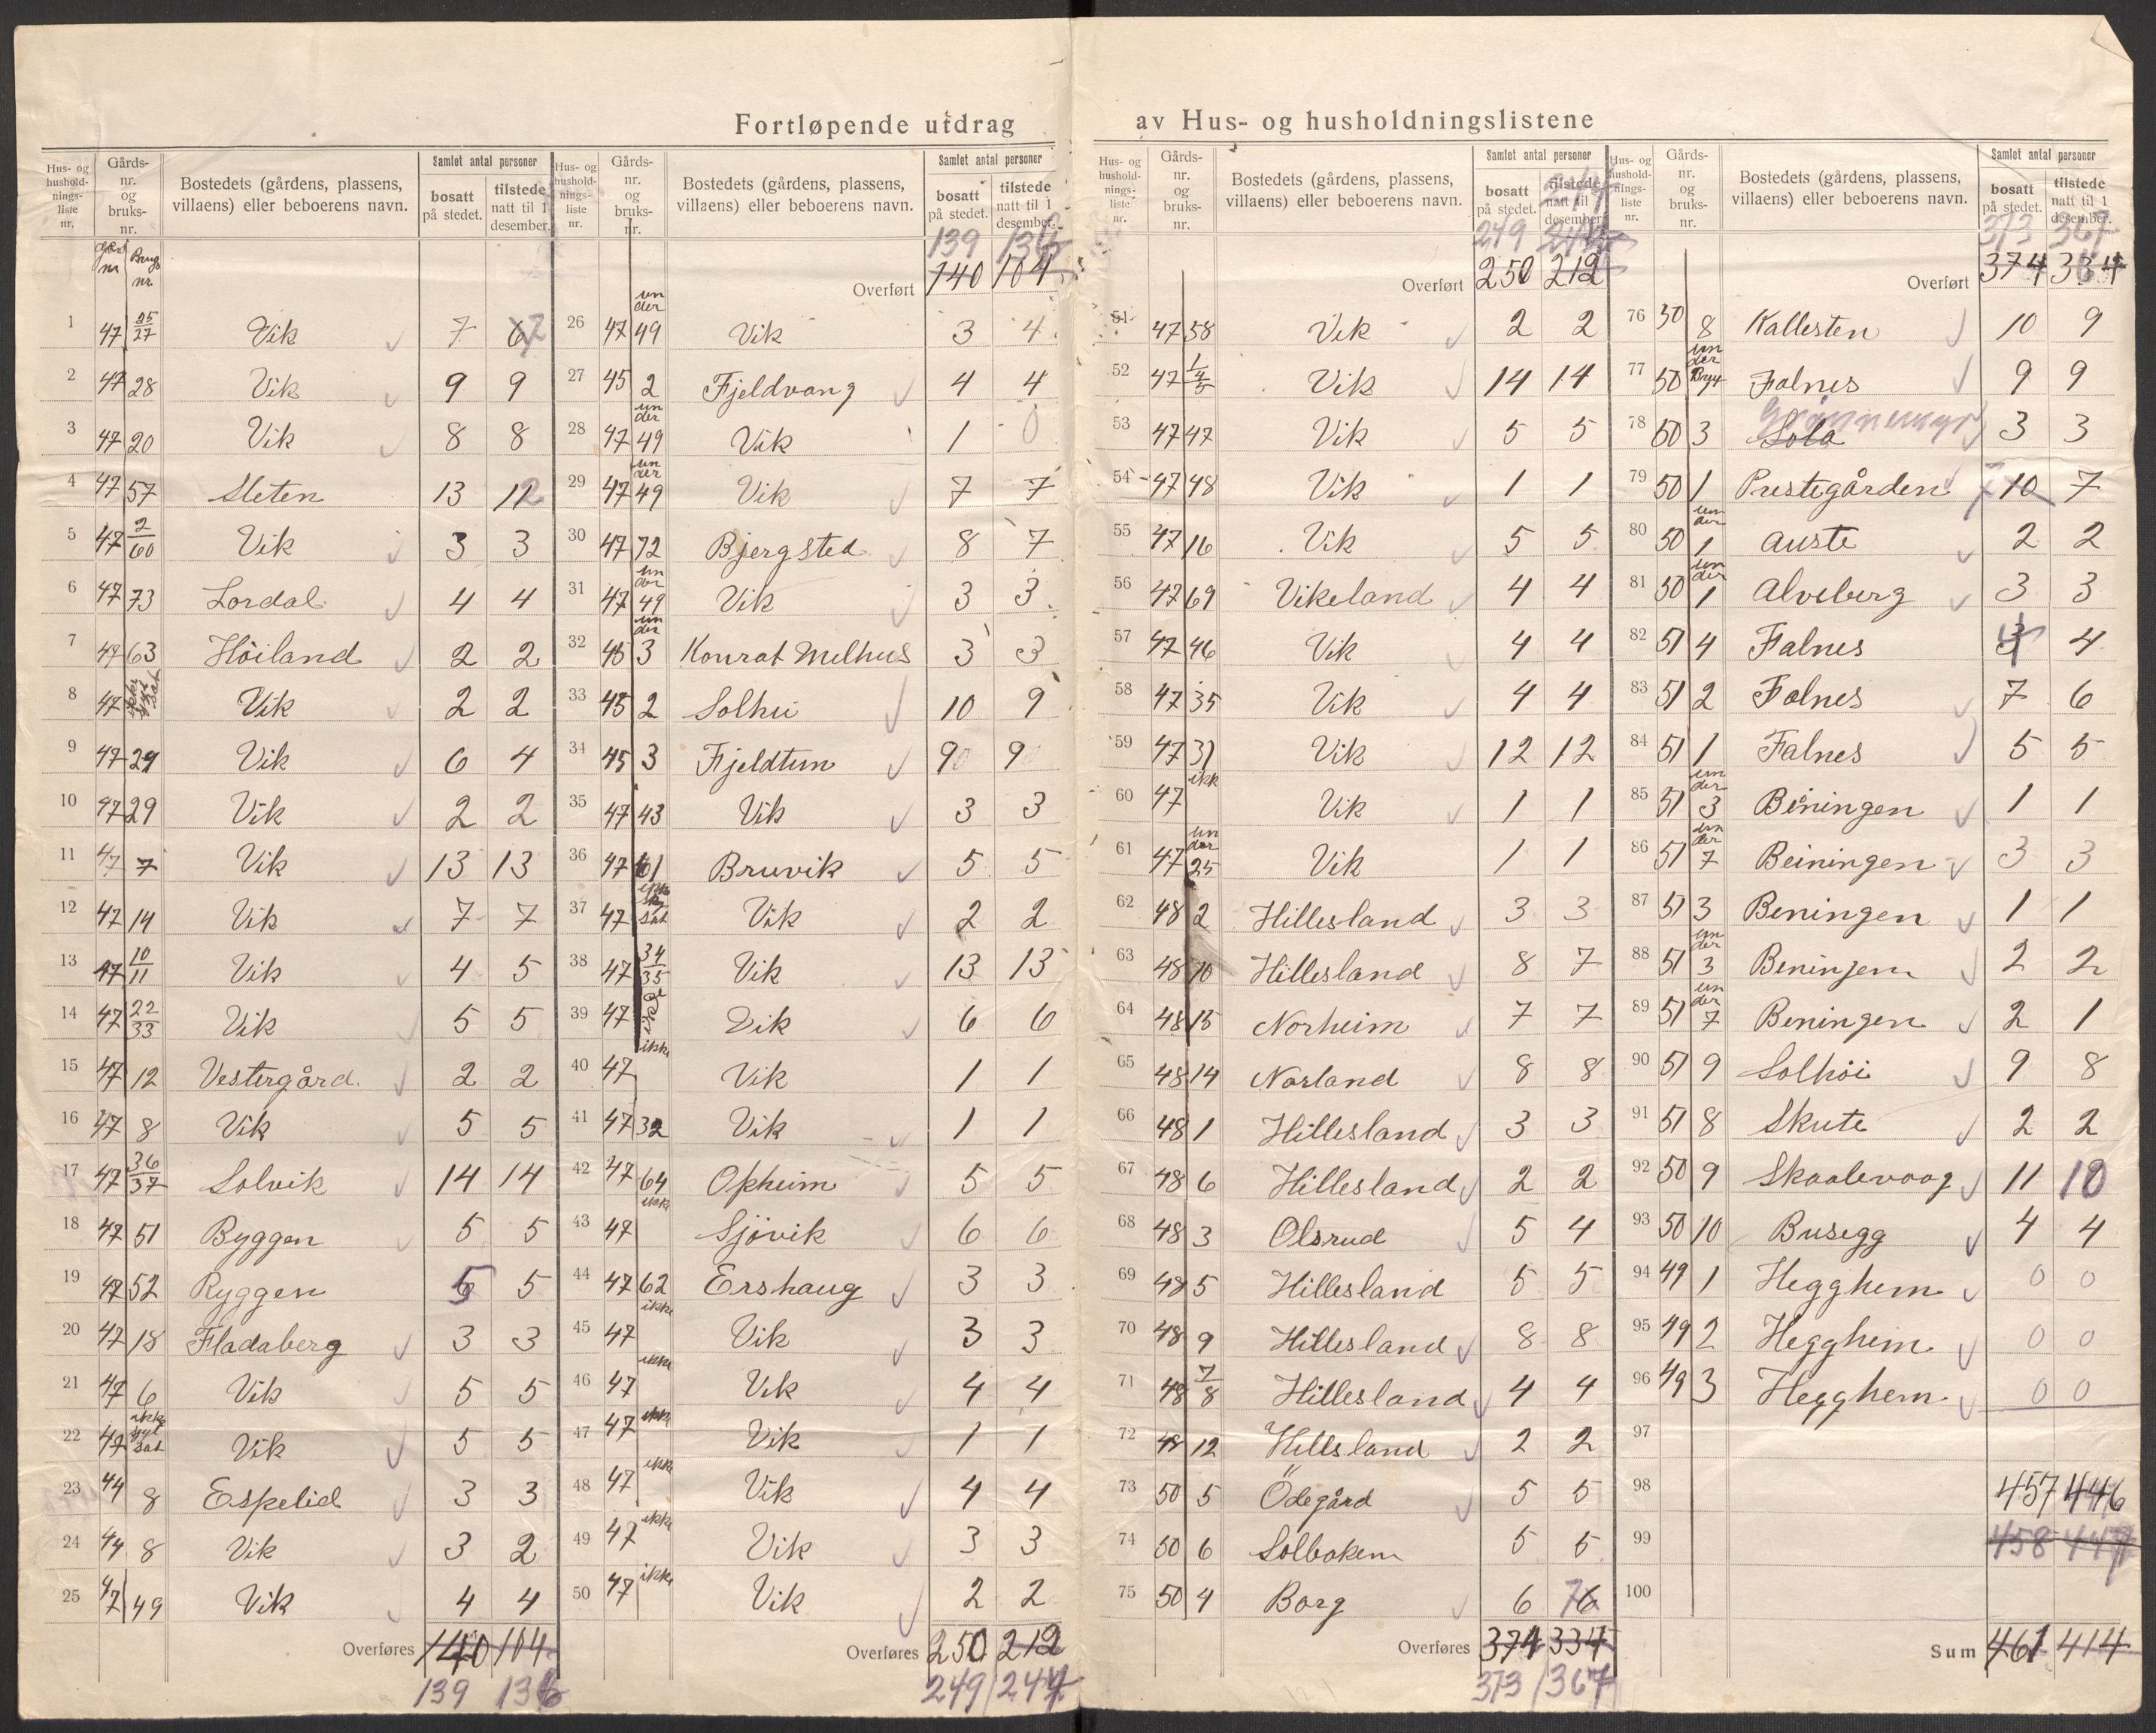 Fortløpende utdrag av Hus- og husholdningslistene
Hus- og hushold-nings-liste nr. Gårds-nr. og bruks-nr. Bostedets (gårdens, plassens, villaens) eller beboerens navn. Samlet antal personer bosatt på stedet. tilstede natt til 1 desember.
gårds nr Brugs nr
1 47 25/27 Vik 7 7
2 47 28 Vik 9 9
3 47 20 Vik 8 8
4 47 57 Sleten 13 12
5 47 2/60 Vik 3 3
6 47 73 Lordal 4 4
7 47 63 Höiland 2 2
8 47 ikke Vik 2 2
9 47 29 Vik 6 4
10 47 29 Vik 2 2
11 47 7 Vik 13 13
12 47 14 Vik 7 7
13 47 10/11 Vik 4 5
14 47 22/33 Vik 5 5
15 47 12 Vestergård 2 2
16 47 8 Vik 5 5
17 47 36/37 Solvik 14 14
18 47 51 Byggen 5 5
19 47 52 Ryggen 5 5
20 47 18 Fladaberg 3 3
21 47 6 Vik 5 5
22 47 ikke Vik 5 5
23 44 8 Espelid 3 3
24 44 8 Vik 3 2
25 47 49 Vik 4 4
Overføres 140 104
139 136
Hus- og hushold-nings-liste nr. Gårds-nr. og bruks-nr. Bostedets (gårdens, plassens, villaens) eller beboerens navn. Samlet antal personer bosatt på stedet. tilstede natt til 1 desember.
139 136
Overført 140 104
26 47 under 49 Vik 3 4
27 45 2 Fjeldvang 4 4
28 47 under 49 Vik 1 0
29 47 under 49 Vik 7 7
30 47 72 Bjergsted 8 7
31 47 under 49 Vik 3 3
32 45 under 3 Konrat Melhus 3 3
33 45 2 Solhei 10 9
34 45 3 Fjeldtun 9 9
35 47 43 Vik 3 3
36 47 61 Bruvik 5 5
37 47 ikke Vik 2 2
38 47 34/35 Vik 13 13
39 47 ikke Vik 6 6
40 47 ikke Vik 1 1
41 47 32 Vik 1 1
42 47 64 Opheim 5 5
43 47 ikke Sjövik 6 6
44 47 62 Ershaug 3 3
45 47 ikke Vik 3 3
46 47 ikke Vik 4 4
47 47 ikke Vik 1 1
48 47 ikke Vik 4 4
49 47 ikke Vik 3 3
50 47 ikke Vik 2 2
Overføres 250 212
249 244
Hus- og hushold-nings-liste nr. Gårds-nr. og bruks-nr. Bostedets (gårdens, plassens, villaens) eller beboerens navn. Samlet antal personer bosatt på stedet. tilstede natt til 1 desember.
249 244
Overført 250 212
51 47 58 Vik 2 2
52 47 1/4/5 Vik 14 14
53 47 47 Vik 5 5
54 47 48 Vik 1 1
55 47 16 Vik 5 5
56 47 69 Vikeland 4 4
57 47 46 Vik 4 4
58 47 35 Vik 4 4
59 47 31 Vik 12 12
60 47 ikk Vik 1 1
61 47 under 25 Vik 1 1
62 48 2 Hillesland 3 3
63 48 10 Hillesland 8 7
64 48 15 Norheim 7 7
65 48 14 Norland 8 8
66 48 1 Hillesland 3 3
67 48 6 Hillesland 2 2
68 48 3 Olsrud 5 4
69 48 5 Hillesland 5 5
70 48 9 Hillesland 8 8
71 48 7/8 Hillesland 4 4
72 48 12 Hillsland 2 2
73 50 5 Ödegård 5 5
74 50 6 Solbaken 5 5
75 50 4 Borg 6 6
Overføres 374 334
373 367
Hus- og hushold-nings-liste nr. Gårds-nr. og bruks-nr. Bostedets (gårdens, plassens, villaens) eller beboerens navn. Samlet antal personer bosatt på stedet. tilstede natt til 1 desember.
373 367
Overført 374 334
76 50 8 Kallesten 10 9
77 50 under Falnes 9 9
Grönnemyr
78 50 3 Sola 3 3
79 50 1 Prestegården 7 10 7
80 50 under 1 Auste 2 2
81 50 under 1 Alveberg 3 3
82 51 4 Falnes 4 4
83 51 2 Falnes 7 6
84 51 1 Falnes 5 5
85 51 under 3 Beningen 1 1
86 51 under 7 Beiningen 3 3
87 51 3 Beningen 1 1
88 51 under 3 Beningen 2 2
89 51 under 7 Beningen 2 1
90 51 9 Solhöi 9 8
91 51 8 Skute 2 2
92 50 9 Skaalevaag 11 10
93 50 10 Busegg 4 4
94 49 1 Hegghem 0 0
95 49 2 Hegghem 0 0
96 49 3 Hegghem 0 0
97
98 457 446
99 458 447
100
Sum 461 414